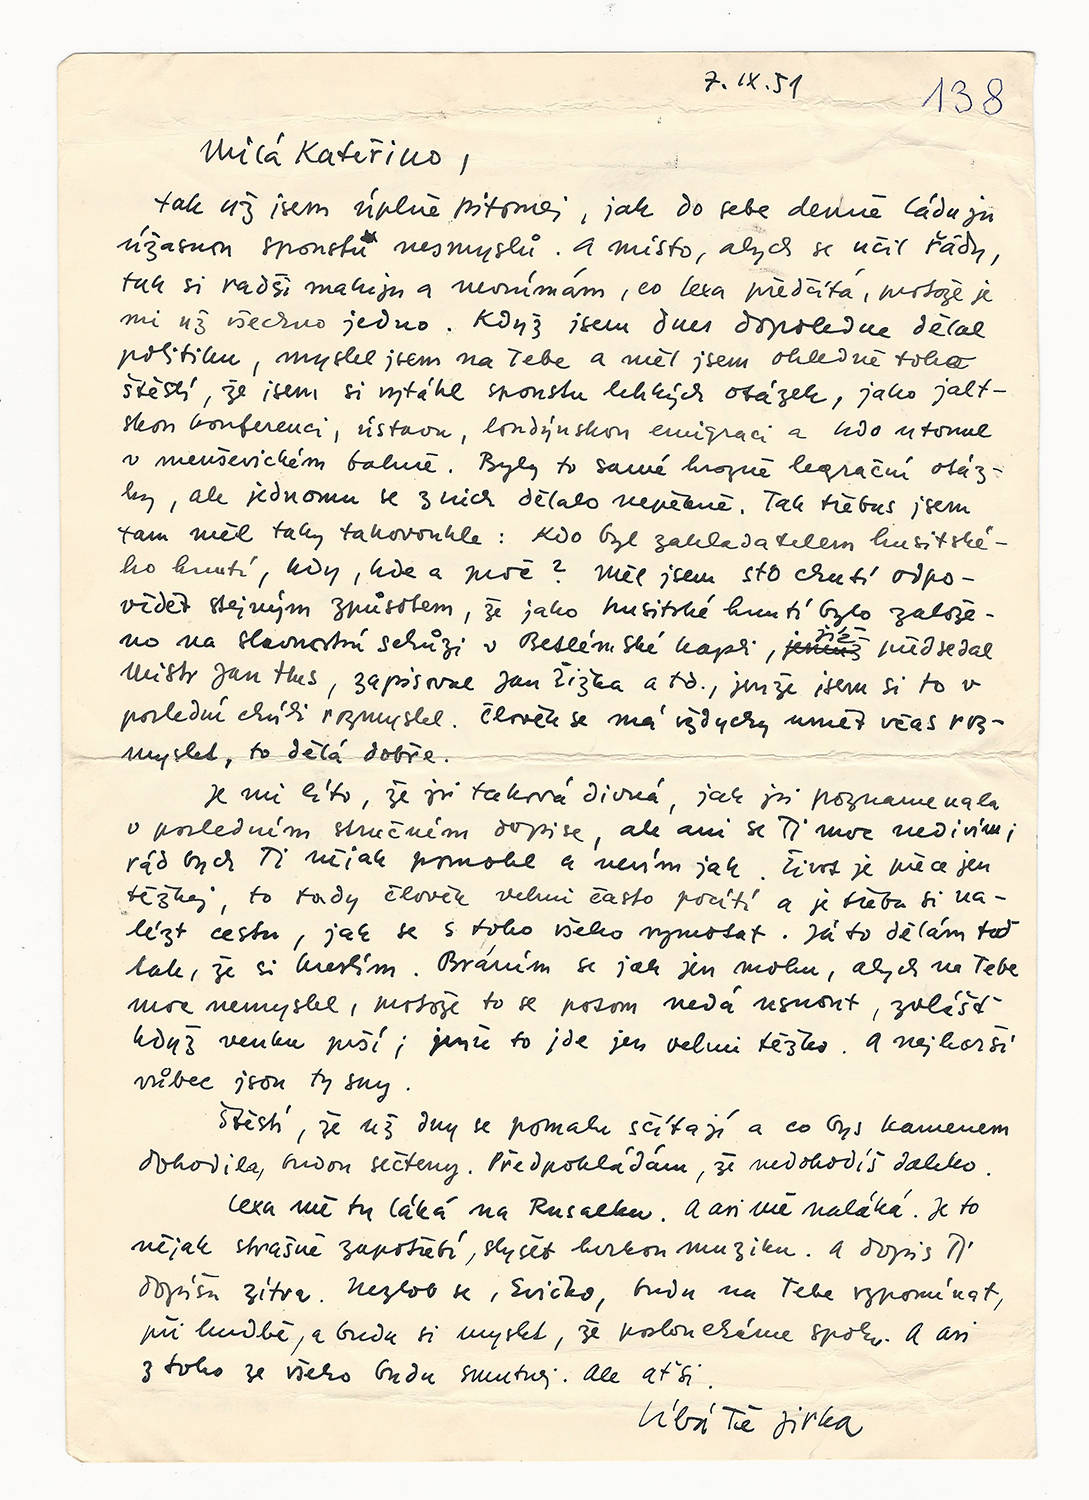 7.IX.51
138
Milá Kateřino,
tak už jsem úplně pitomej, jak do sebe denně láduju
úžasnou spoustu nesmyslů. A místo, abych se učil řády,
tak si radši maluju a nevnímám, co Lexa předčítá, protože je
mi už všechno jedno. Když jsem dnes dopoledne dělal
politiku, myslel jsem na Tebe a měl jsem ohledně toho
štěstí, že jsem si vytáhl spoustu lehkých otázek, jako jalt-
skou konferenci, ústavu, londýnskou emigraci a kdo utonul
v menševickém bahně. Byly to samé hrozně legrační otáz-
ky, ale jednomu se z nich dělalo nepěkně. Tak třebas jsem
tam měl taky takovouhle: Kdo byl zakladatelem husitské-
ho hnutí, kdy, kde a proč? Měl jsem sto chutí odpo-
vědět stejným způsobem, že jako husitské hnutí bylo založe-
no na slavnostní schůzi v Betlémské kapli, jíž předsedal
Mistr Jan Hus, zapisoval Jan Žižka atd., jenže jsem si to v
poslední chvíli rozmyslel. Člověk se má vždycky umět včas roz-
myslet, to dělá dobře.
Je mi líto, že jsi taková divná, jak jsi poznamenala
v posledním stručném dopise, ale ani se Ti moc nedivím;
rád bych Ti nějak pomohl a nevím jak. Život je přece jen
těžkej, to tady člověk velmi často pocítí a je třeba si na-
lézt cestu, jak se s toho všeho vymotat. Já to dělám teď
tak, že si kreslím. Bráním se jak jen mohu, abych na Tebe
moc nemyslel, protože to se potom nedá usnout, zvlášť
když venku prší; jenže to jde jen velmi těžko. A nejhorší
vůbec jsou ty sny.
Štěstí, že už dny se pomalu sčítají a co bys kamenem
dohodila, budou sečteny. Předpokládám, že nedohodíš daleko.
Lexa mě tu láká na Rusalku. A asi mě naláká. Je to
nějak strašně zapotřebí, slyšet horkou muziku. A dopis Ti
dopíšu zítra. Nezlob se, Evičko, budu na Tebe vzpomínat,
při hudbě, a budu si myslet, že posloucháme spolu. A asi
z toho ze všeho budu smutnej. Ale ať si.
Líbá Tě Jirka